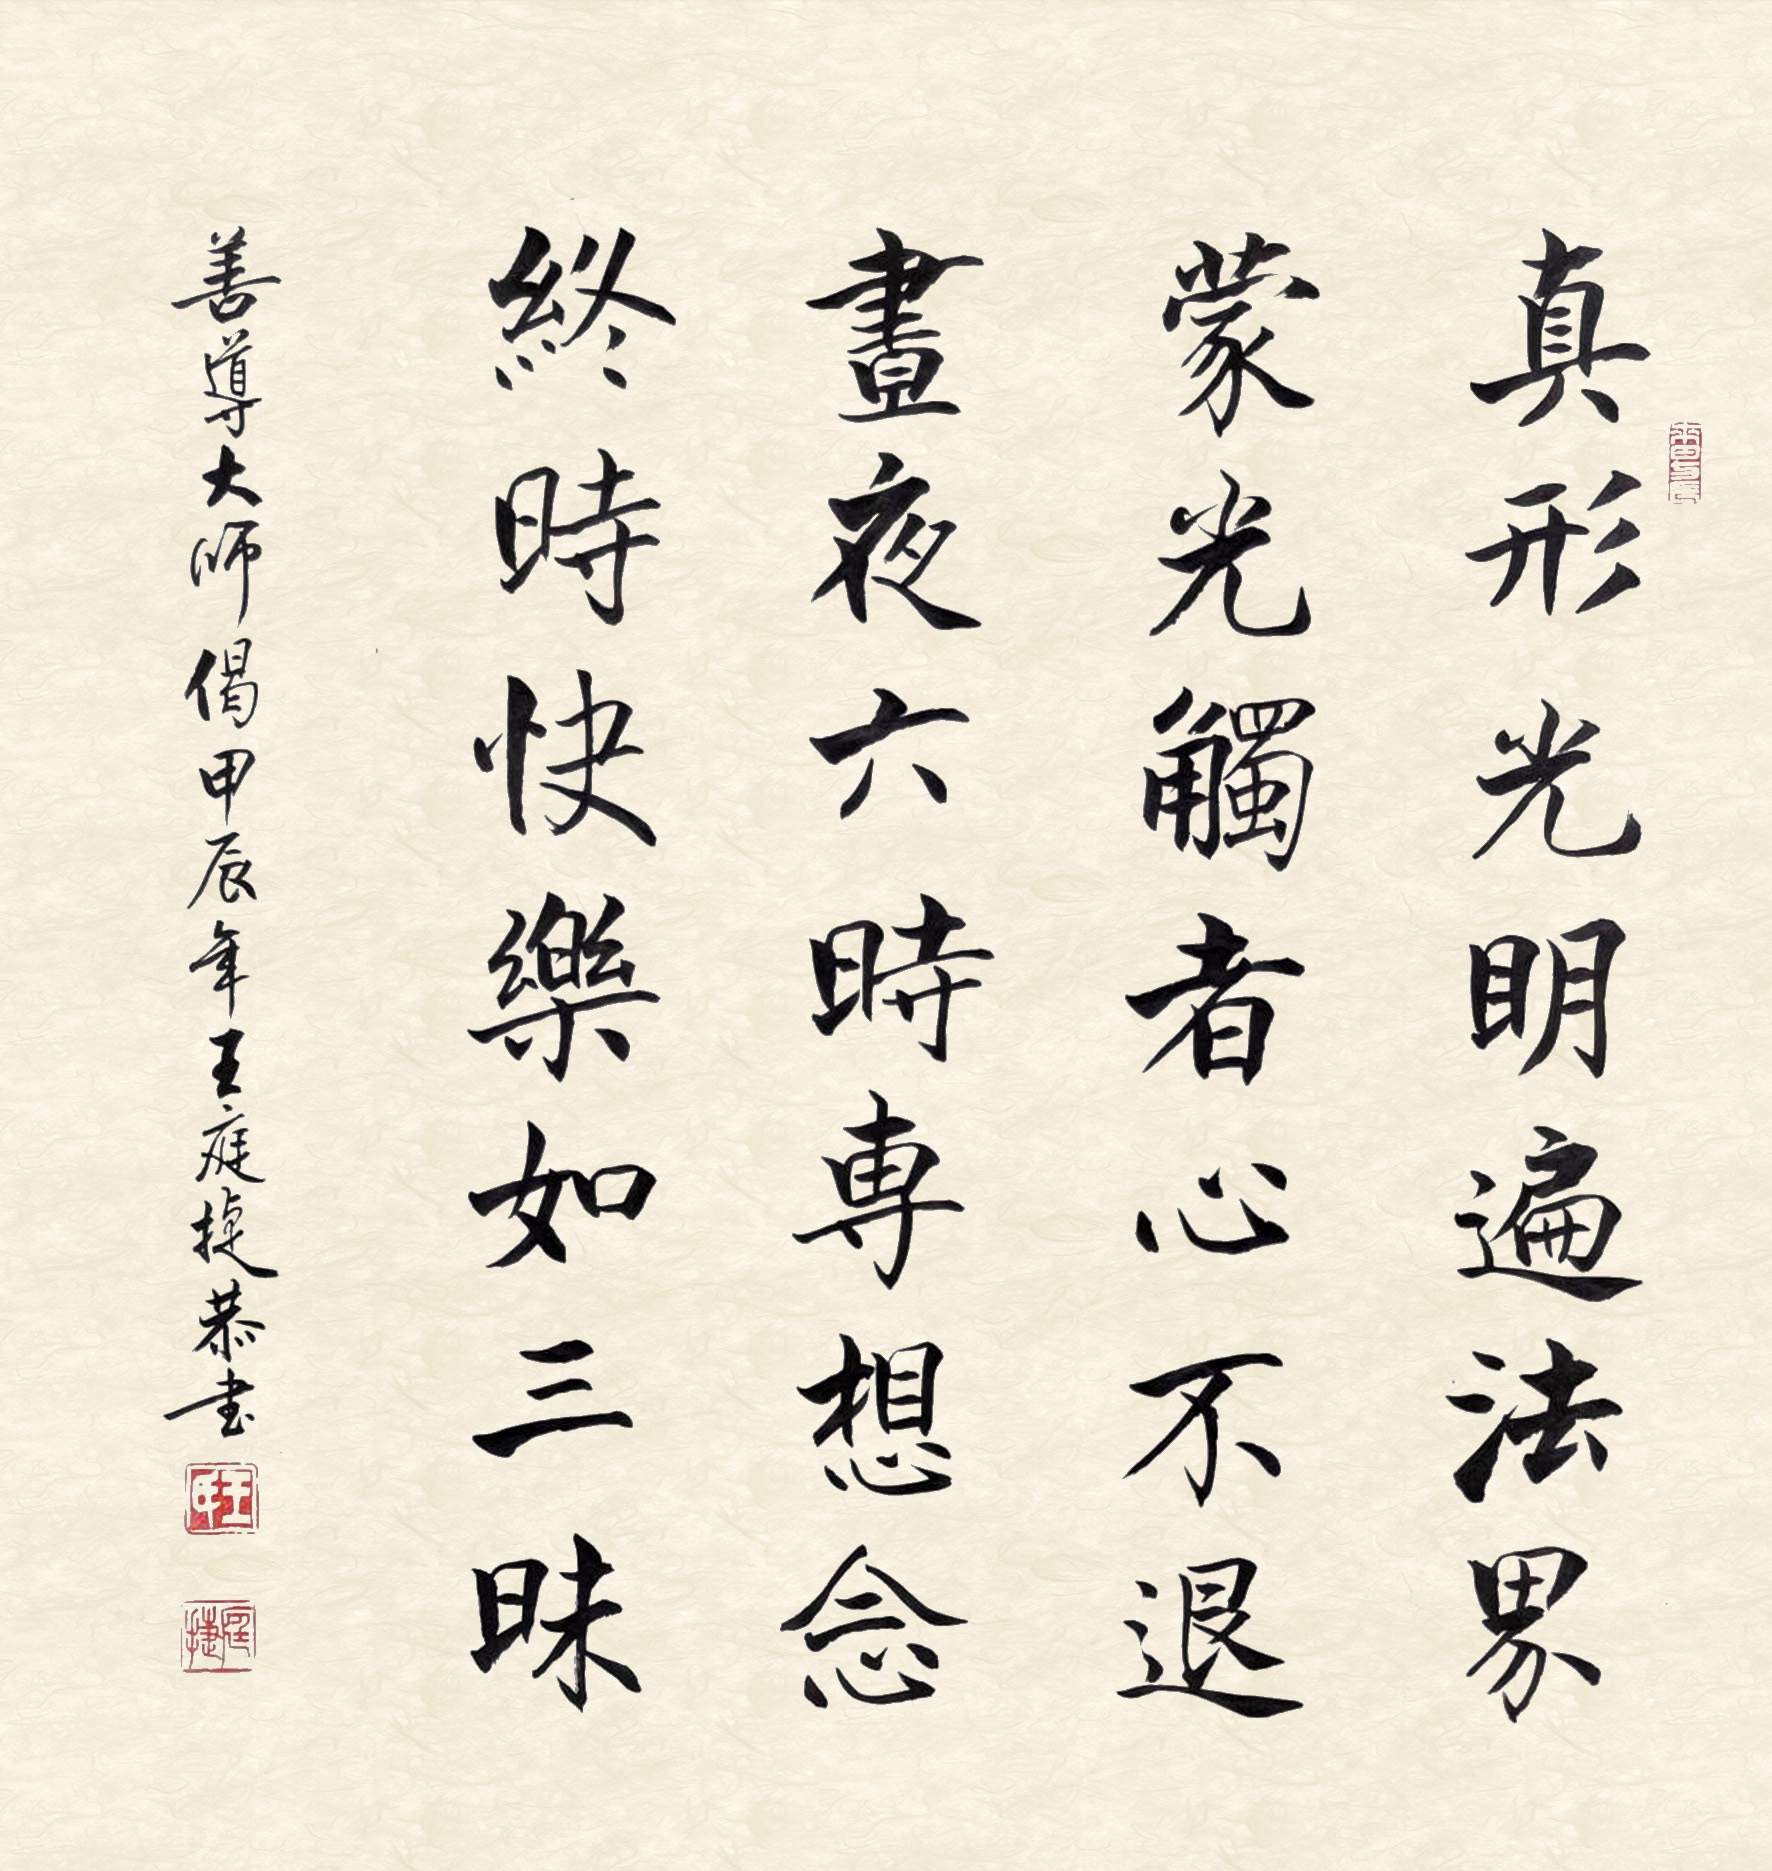 真形光明遍法界
蒙光觸者心不退
晝夜六時專想念
終時快樂如三昧
善導大師偈甲辰年王庭捷恭书
庭捷